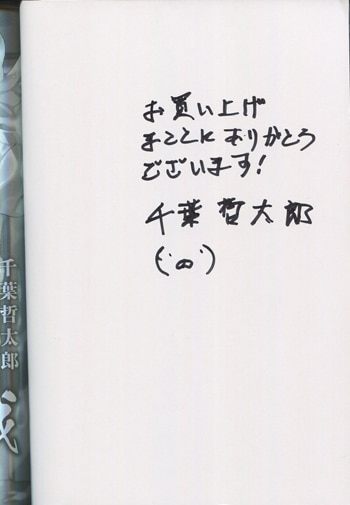 お買い上げ
まことにありがとう
ございます!
千葉哲太郎
千葉哲太郎